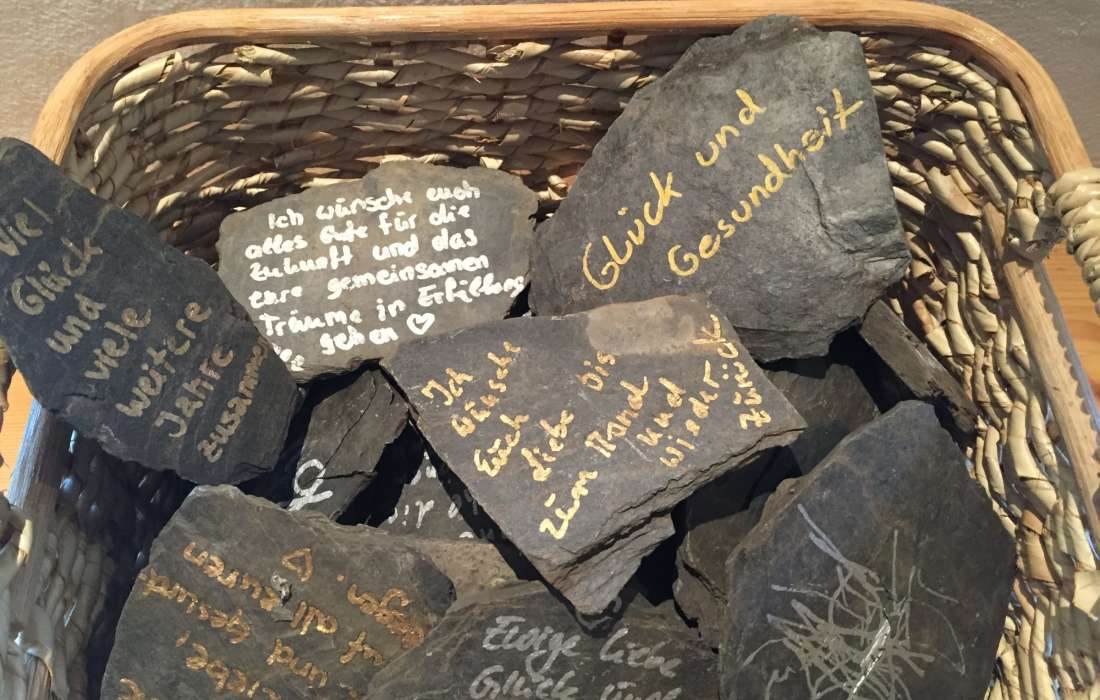 Viel
Glück
und
viele
weitere
Jahre
zusammen
Ich wünsche euch
alles Gute für die
Zukunft und das
eure gemeinsamen
Träume in Erfüllung
gehen ♡
Glück und
Gesundheit
Ich
wünsche
Euch
diebe bis
zum Mond
und
wieder
zurück
all euren
und
Ewige liebe
Glück